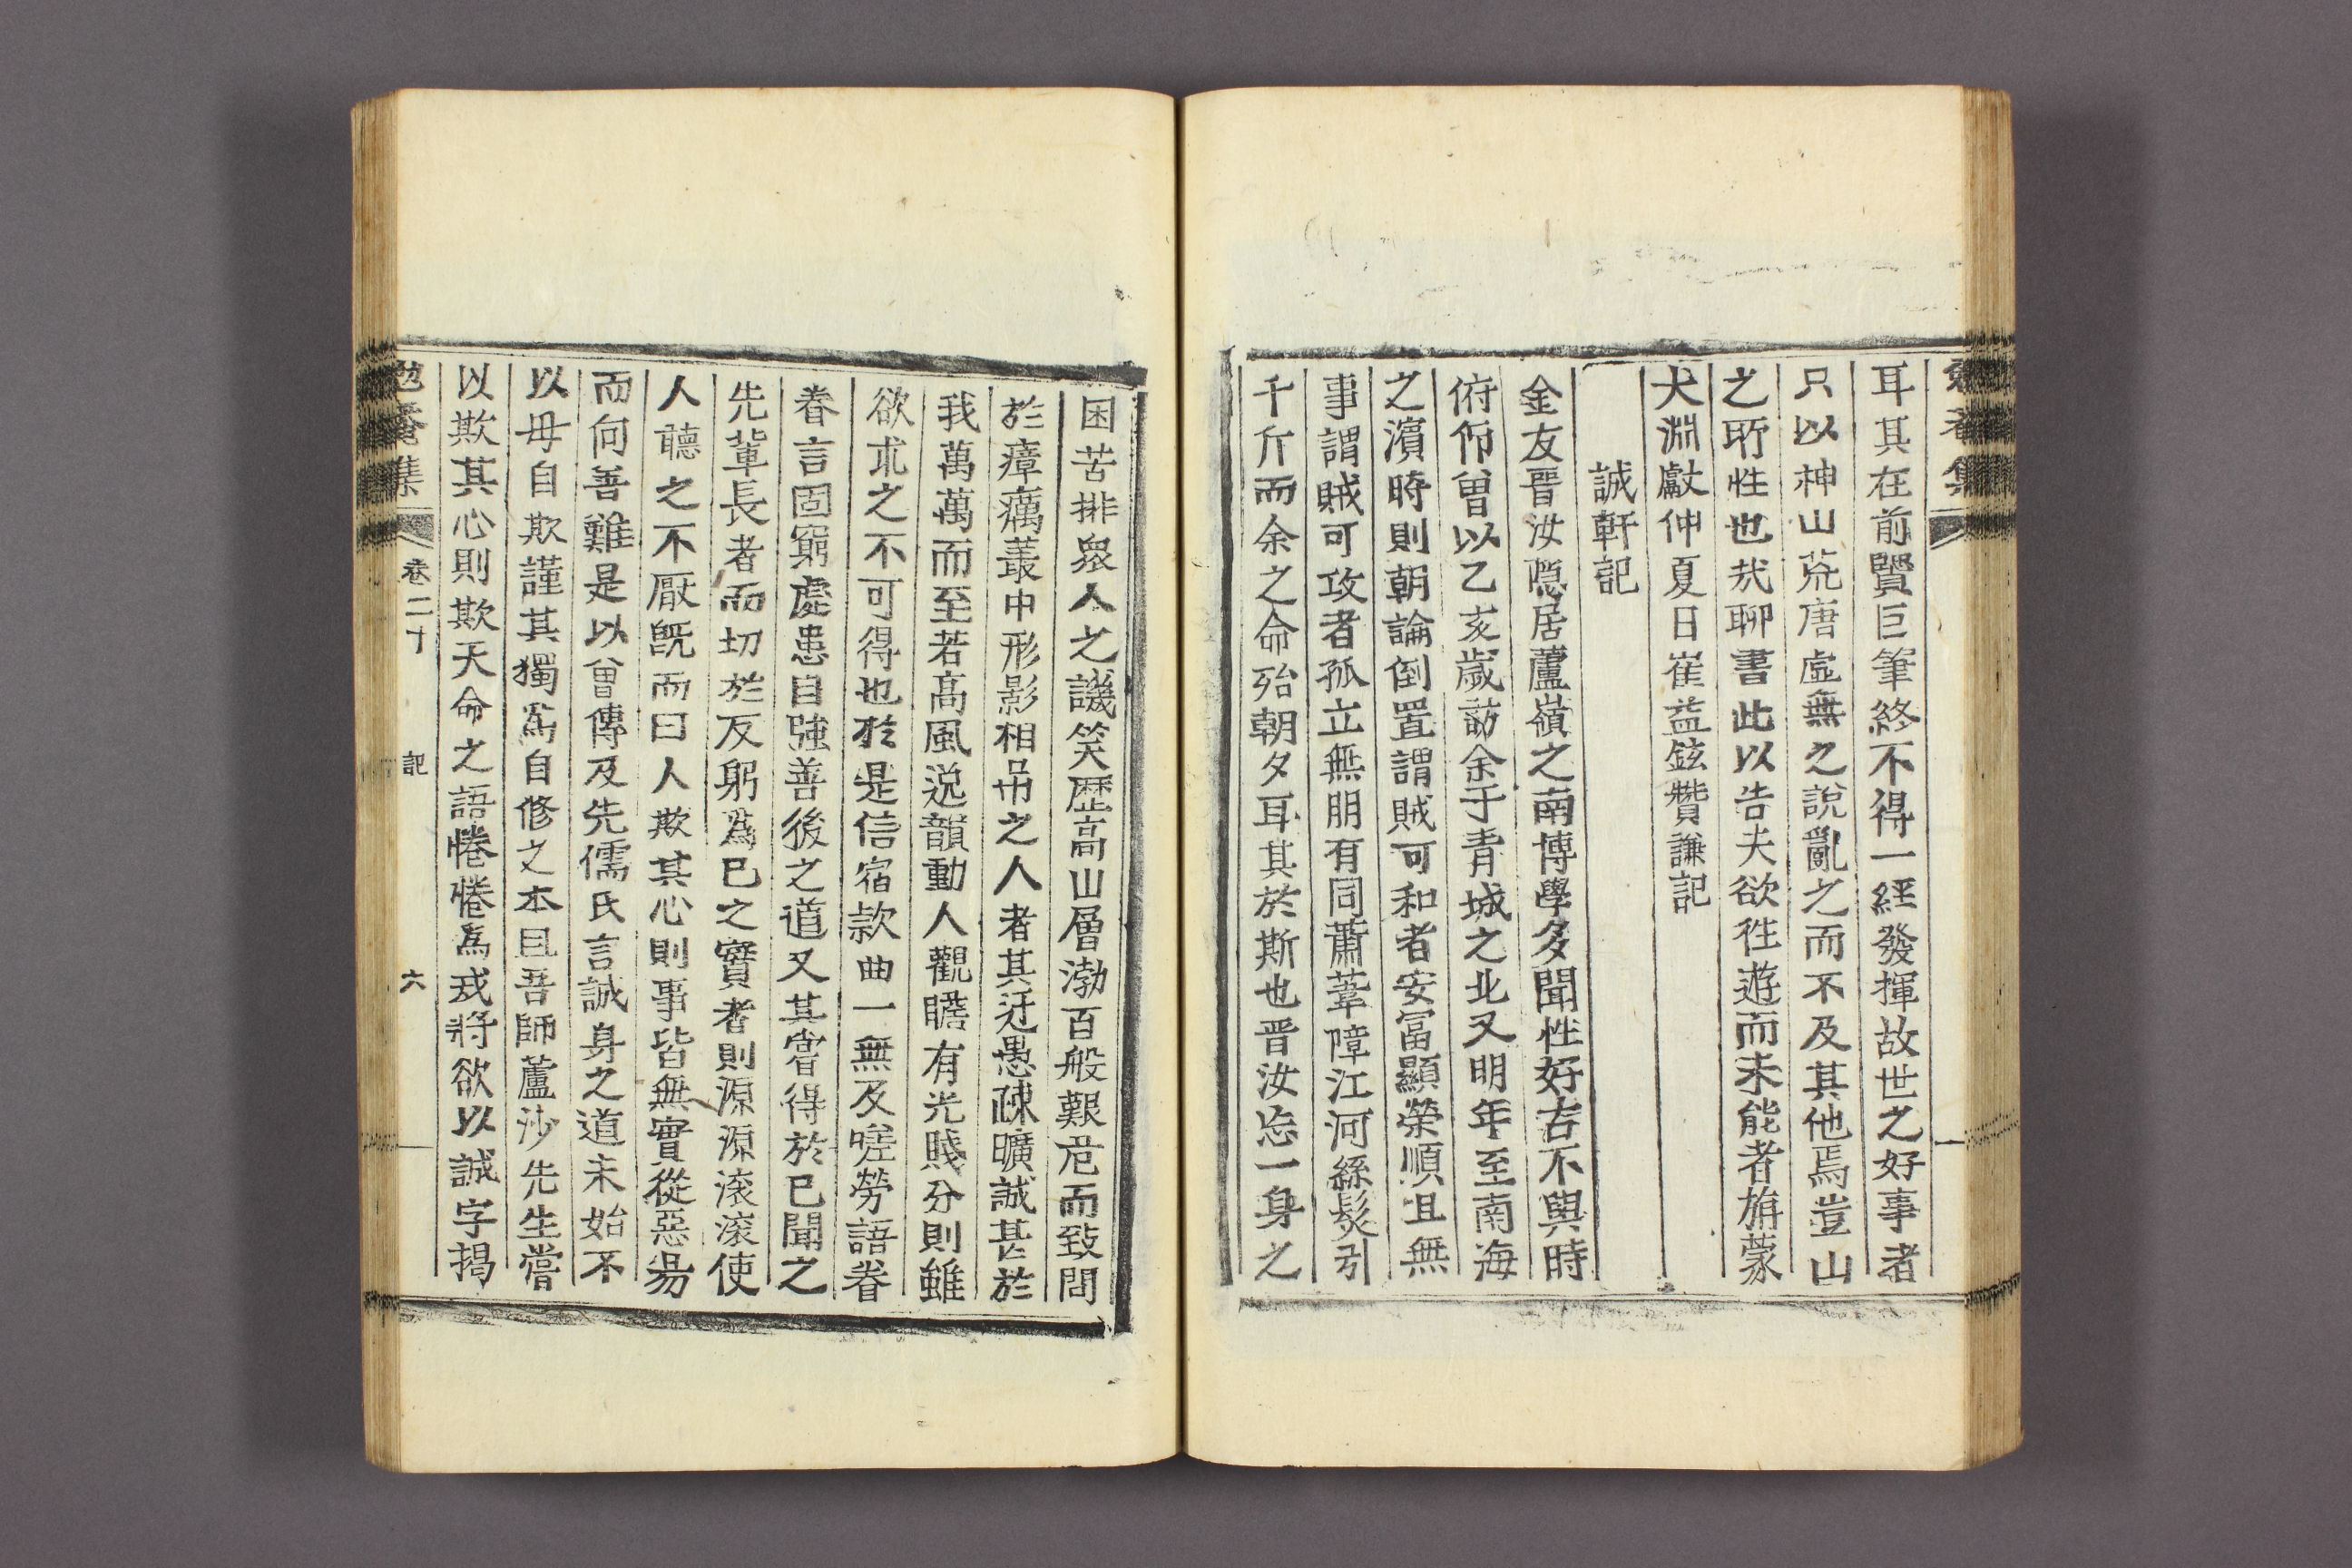 耳其在前賢巨筆終不得一經發揮故世之好事者
只以神山荒唐虛無之說亂之而不及其他焉豈山
之所性也㢤聊書此以告夫欲徃遊而未能者旃蒙
大淵獻仲夏日崔益鉉贊謙記
誠軒記
金友晋汝隱居蘆嶺之南博學多聞性好古不與時
俯仰曾以乙亥歲訪余于青城之北又明年至南海
之濱時則朝論倒置謂賊可和者安富顯榮順且無
事謂賊可攻者孤立無朋有同蕭葦障江河絲髮引
千斤而余之命殆朝夕耳其於斯也晋汝忘一身之
困苦排衆人之譏笑歷高山層渤百般艱危而致問
於瘴癘叢中形影相吊之人者其迂愚疎曠誠甚於
我萬萬而至若高風逸韻動人觀瞻有光賤分則雖
欲求之不可得也於是信宿款曲一無及嗟勞語眷
眷言固窮處患自強善後之道又其嘗得於已聞之
先輩長者而切於反躬爲已之實者則源源滚滚使
人聽之不厭旣而曰人欺其心則事皆無實從惡易
而向善難是以曾傳及先儒氏言誠身之道未始不
以毋自欺謹其獨爲自修之本且吾師蘆沙先生嘗
以欺其心則欺天命之語惓惓爲戒將欲以誠字揭
勉菴集 卷二十 記 六